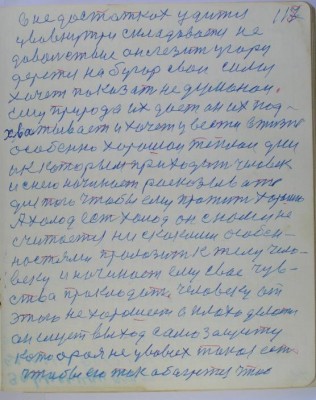 в недостатках удити
ув внутри складовается не
довольствие он лезит у гору
дерется на бугор свои силы
хочет показат не думоной.
ему природа их дает он их под-
хватывает и хочет цвести в тиже
особенно хорошои теплои дни
и к которым приходит человек
и с него начинает раскозыват
для того чтобы ему прожит хорошо
А холод ест холод он с ними не
считается ни с какими особен-
ностями привозит к телу чело-
веку и начинает ему свое чув-
ства прокладыт. человеку от
этого не хорошее а плохо делат
он ищет выход само защиту
которая не увовых такая ест.
чтобы его так обагнется что